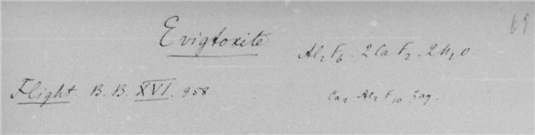 69
Evigtoxite
Al₂ F₆. 2 Ca F₂. 2 H₂O
Flight. B. B. XVI. 958
Ca₂ Al₂ F₁₀ 2aq.